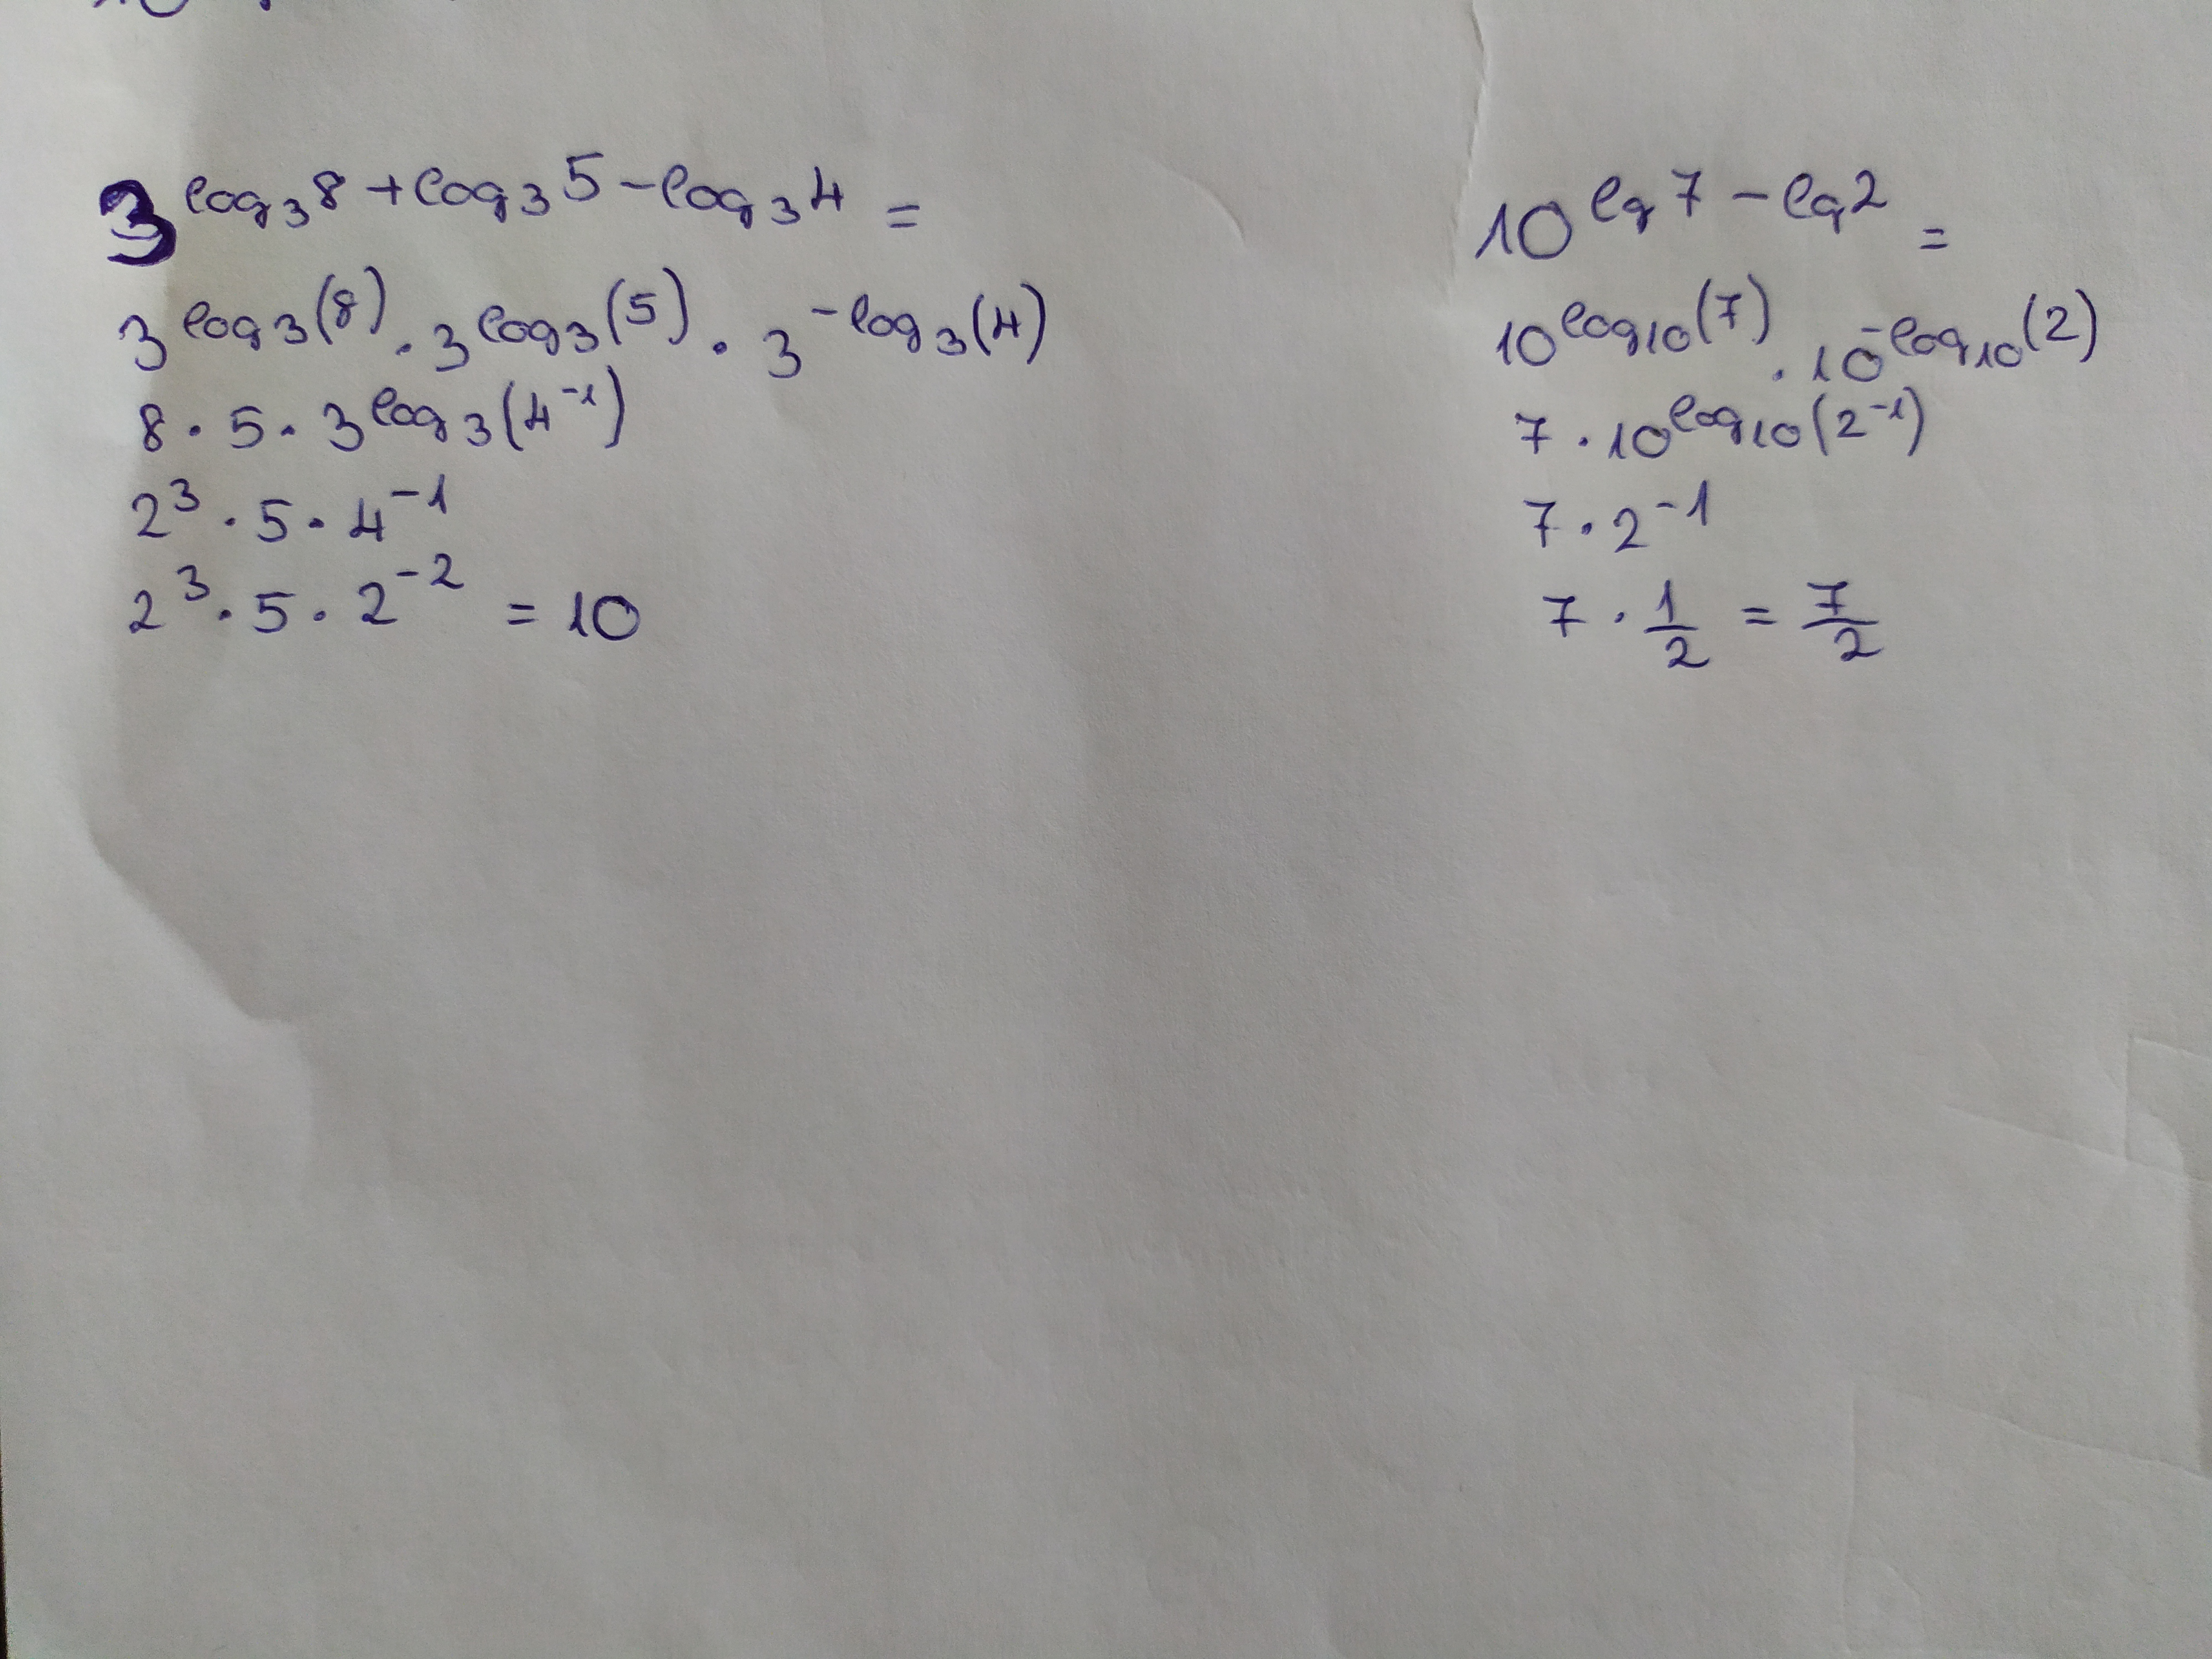 3^{log_3 8 + log_3 5 - log_3 4} =
3^{log_3(8)} · 3^{log_3(5)} · 3^{-log_3(4)}
8 · 5 · 3^{log_3(4^{-1})}
2^3 · 5 · 4^{-1}
2^3 · 5 · 2^{-2} = 10
10^{lg 7 - lg 2} =
10^{log_{10}(7)} · 10^{-log_{10}(2)}
7 · 10^{log_{10}(2^{-1})}
7 · 2^{-1}
7 · \frac{1}{2} = \frac{7}{2}